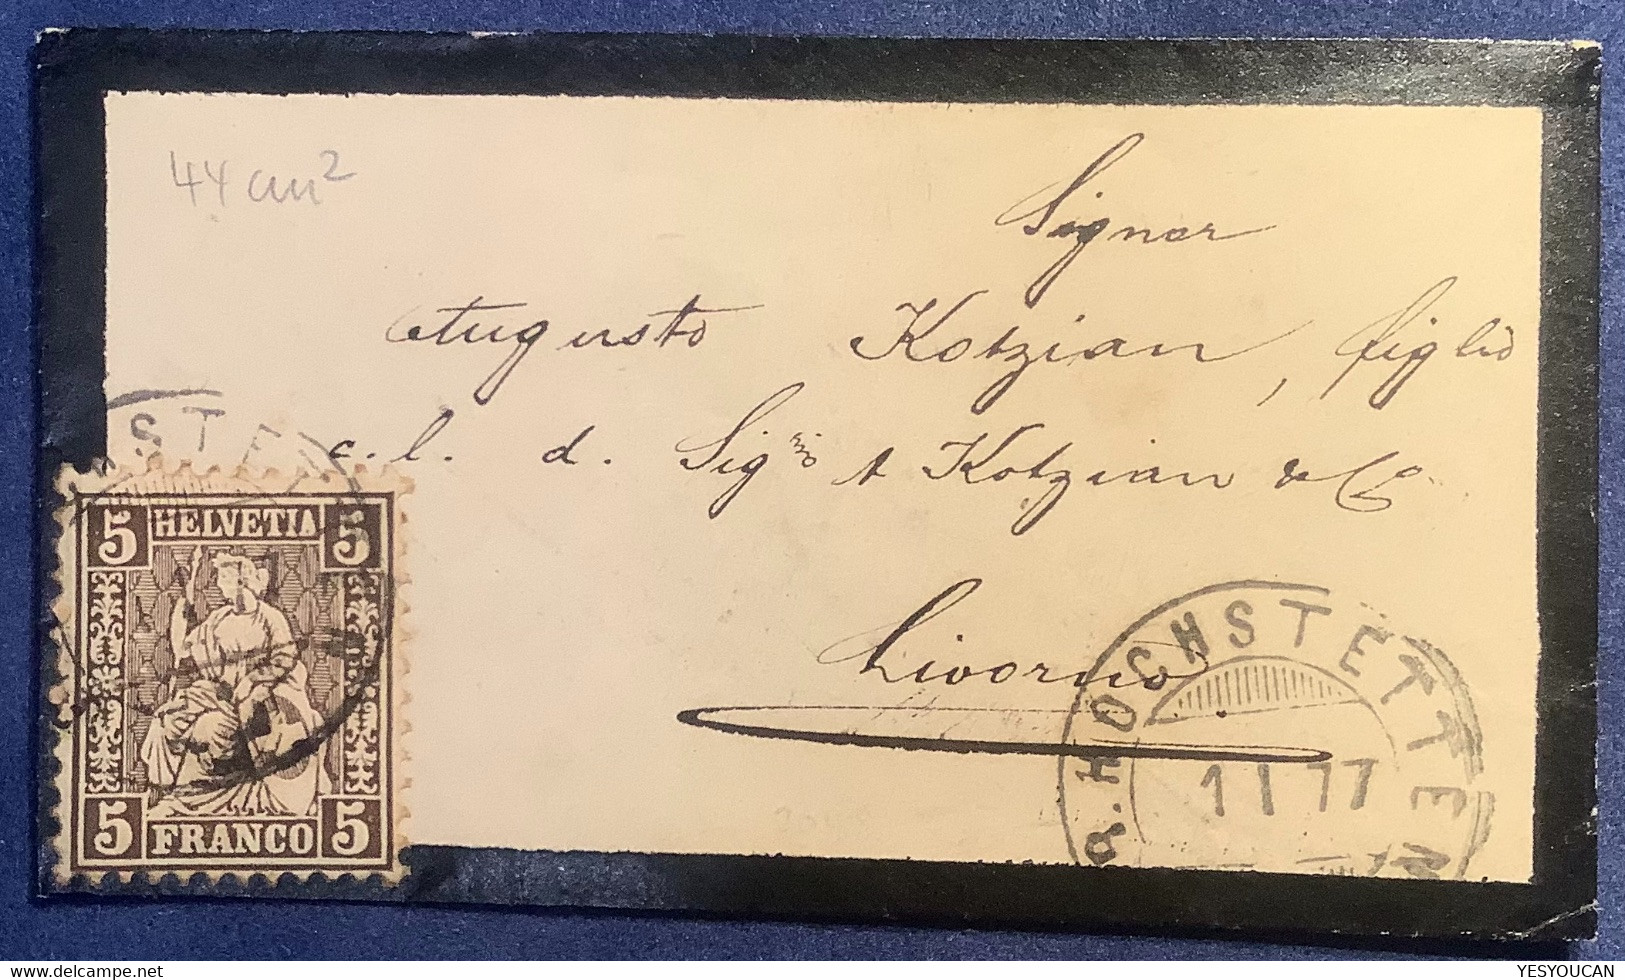 44 cm²
Signor
Augusto Kotzian, figlio
c. l. d. Sigri A Kotzian & Co.
Livorno
5 HELVETIA 5
5 FRANCO 5
HOCHSTETTEN
1 I 77
www.delcampe.net
YESYOUCAN